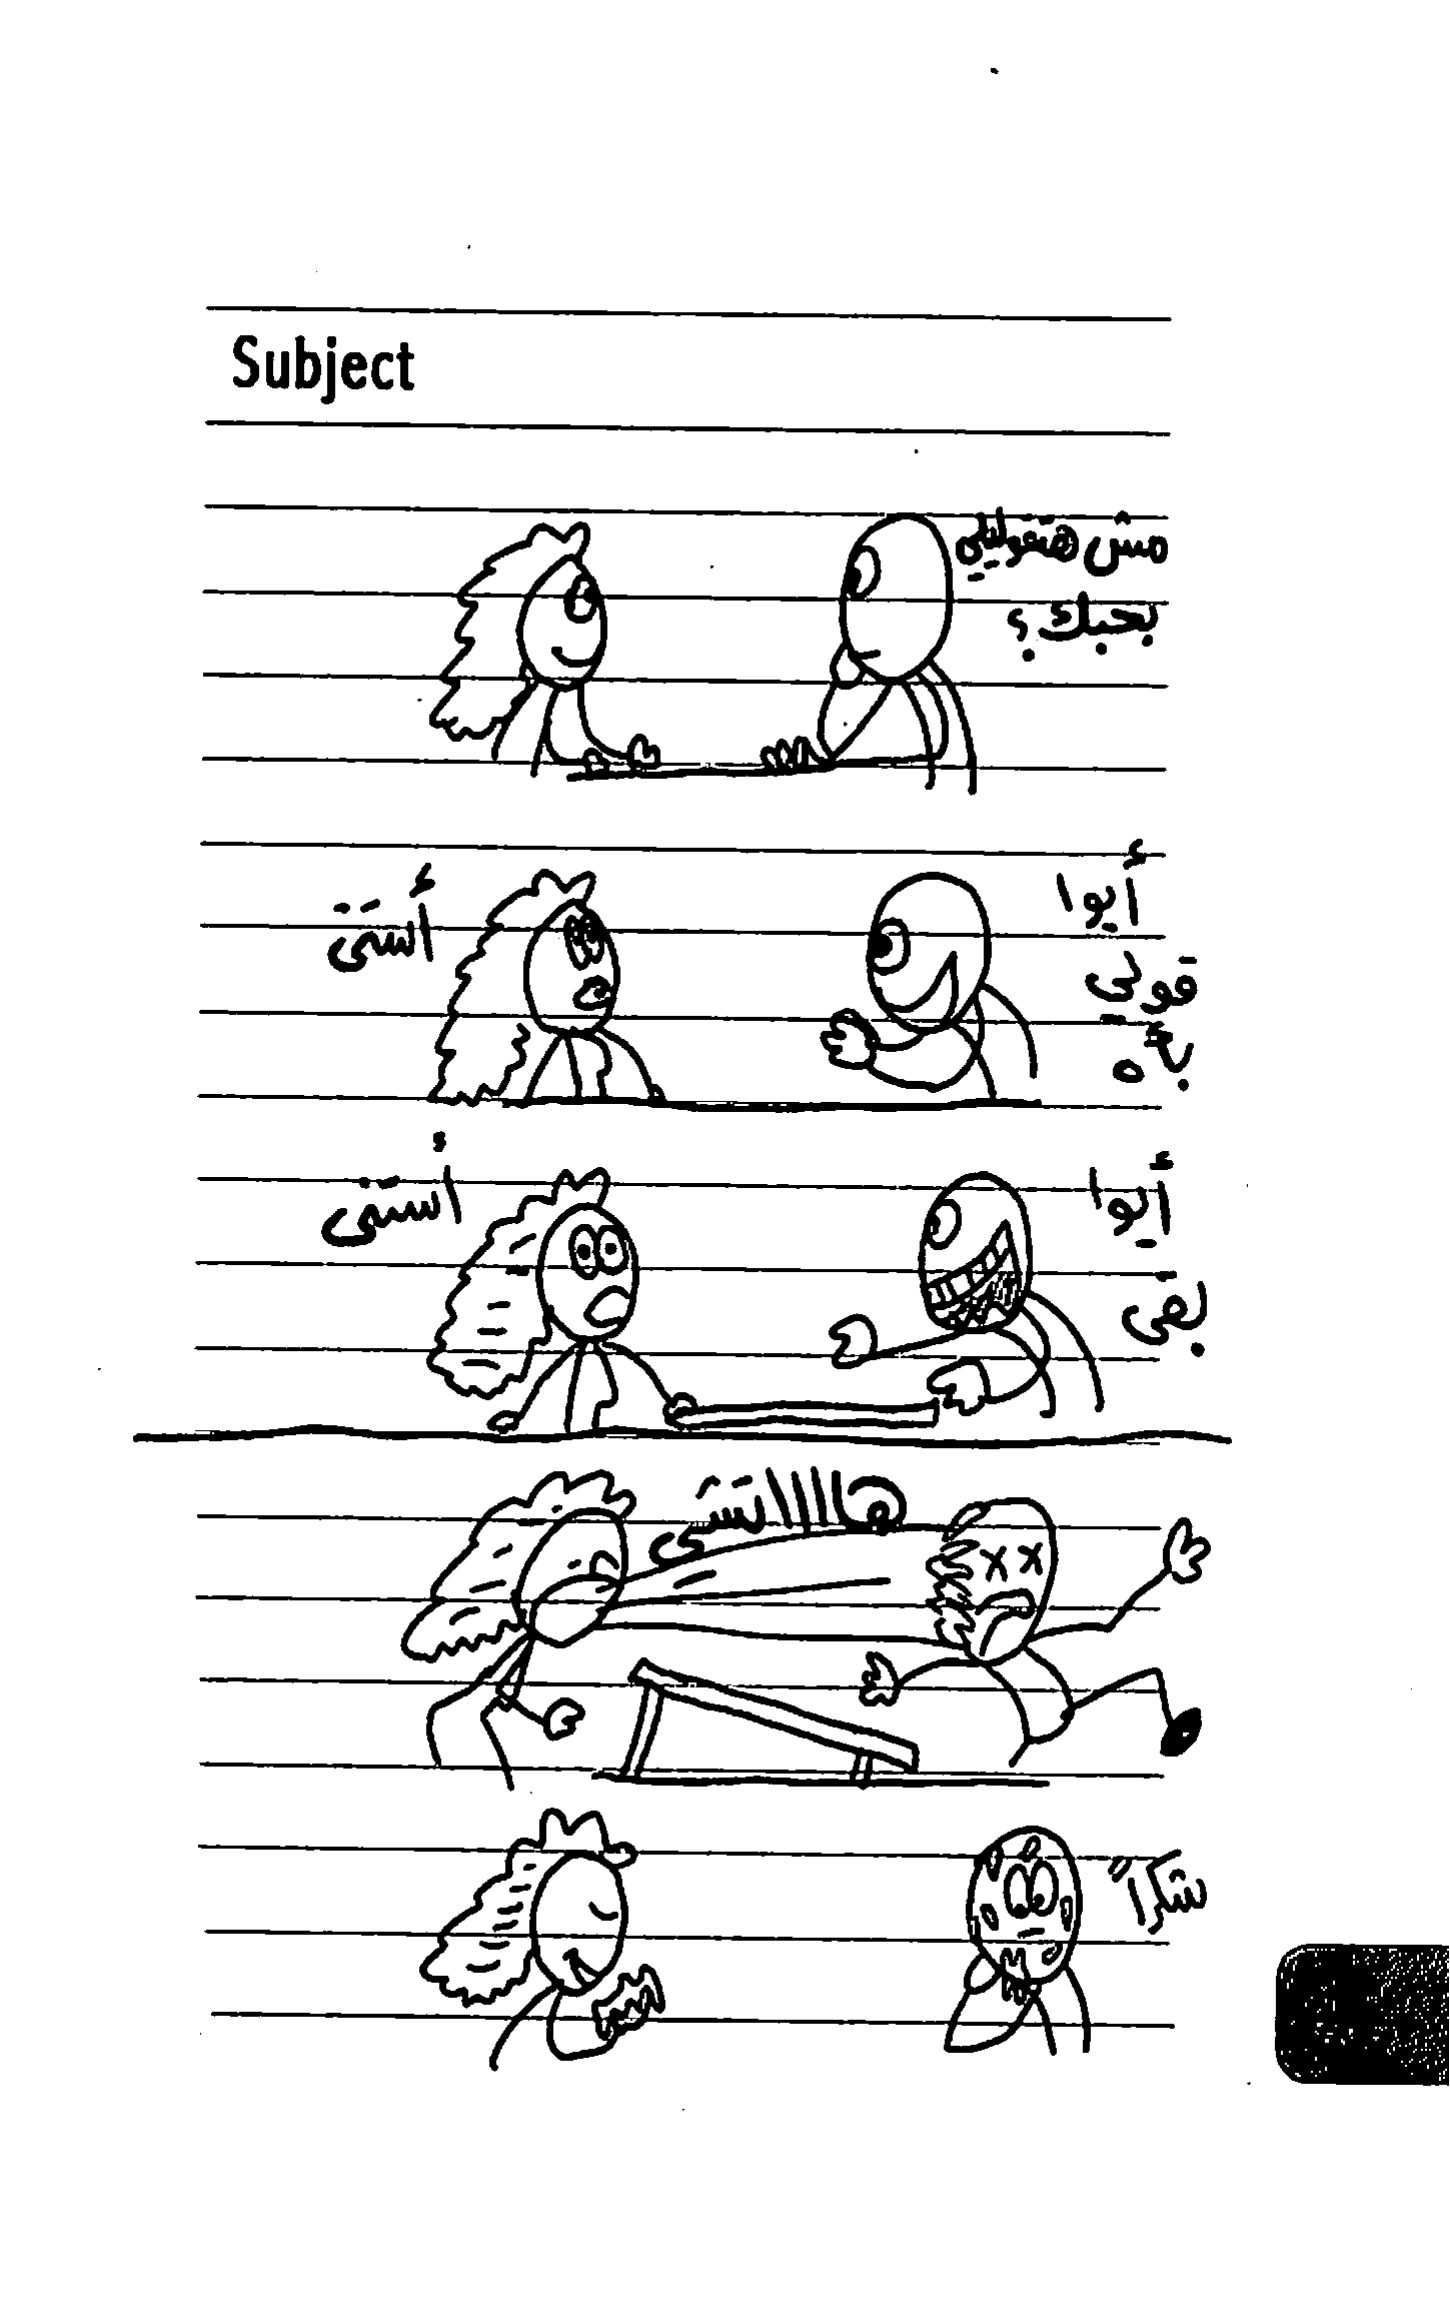 Subject
مش هتقوليلي
بحبك؟
أيوا
قولي
أستنى
أيوا
بقى
أستنى
هااااتشى
شكراً